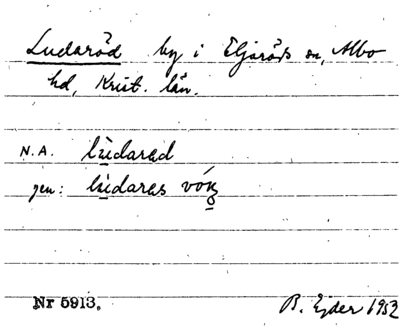 Ludaröd by i Eljaröds sn, Albo
hd, Krist. län.
N.A. lùdarad
gen: lùdaras
Nr 5913.
B. Ejder 1952